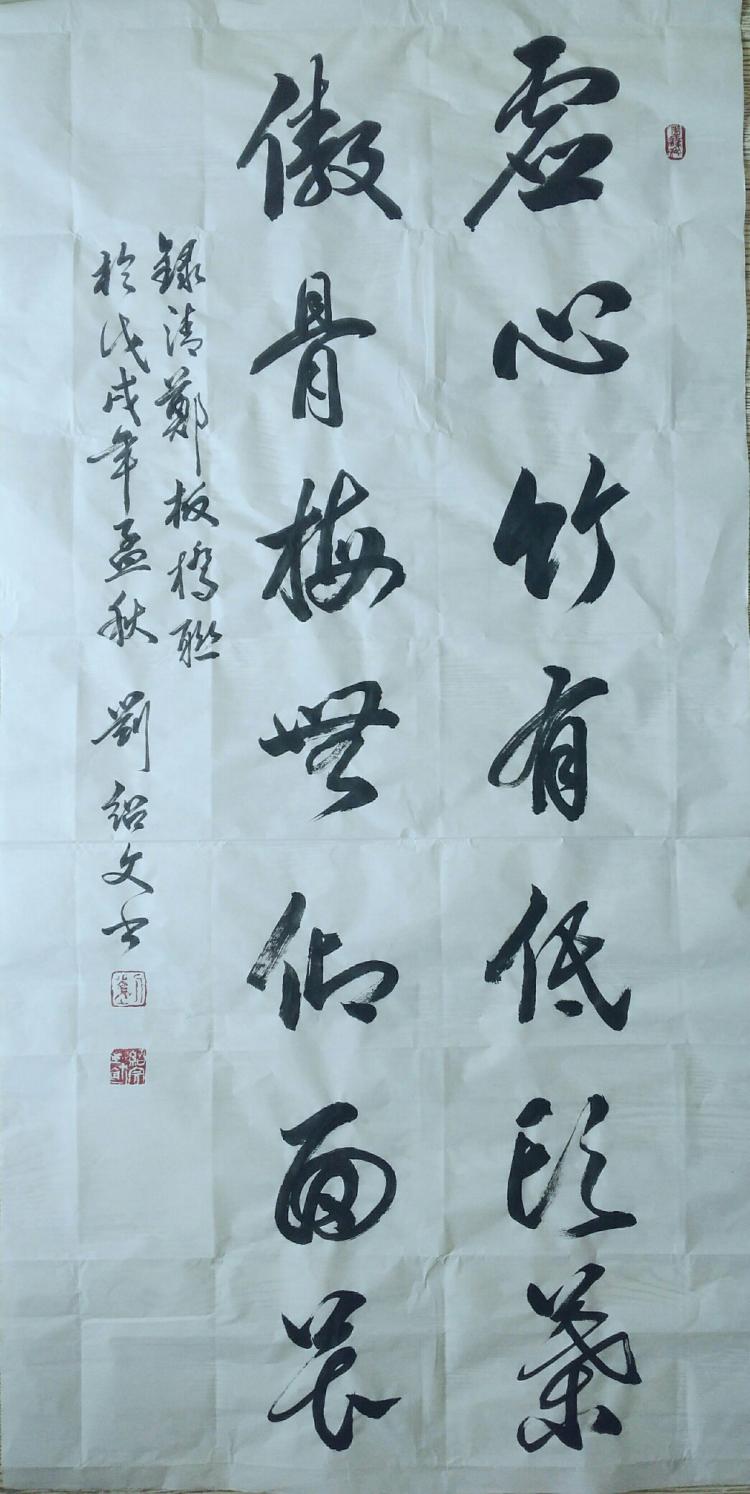 虚心竹有低頭葉
傲骨梅無仰面花
録清鄭板橋聯
於戊戌年孟秋 劉紹文书